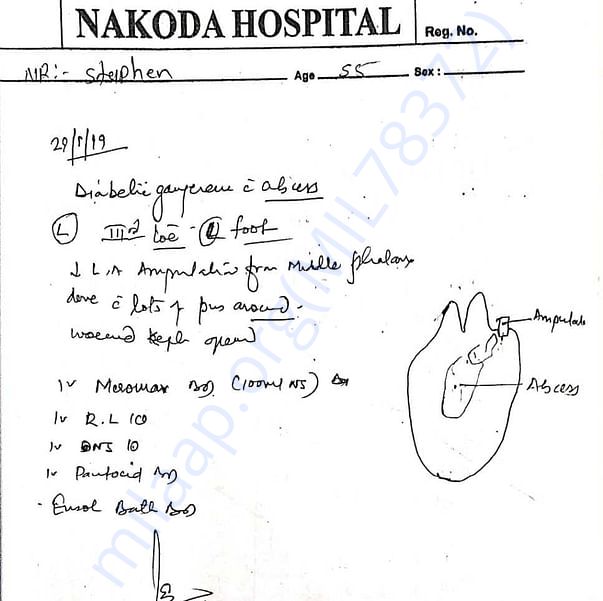 NAKODA HOSPITAL
Reg. No.
MR:- Stephen Age 55 Sex:
29/1/19
Diabetic gangrene c̄ abcess
(L) IIIrd toe (L) foot
↓ L.A Amputation from Middle phalanx
done c̄ lots of pus around.
wound kept open
Amputate
Abcess
IV Meromax BD (100ml NS)
IV R.L
IV DNS
IV Pantocid BD
Eusol Bath BD
milaap.org(MIL78372)